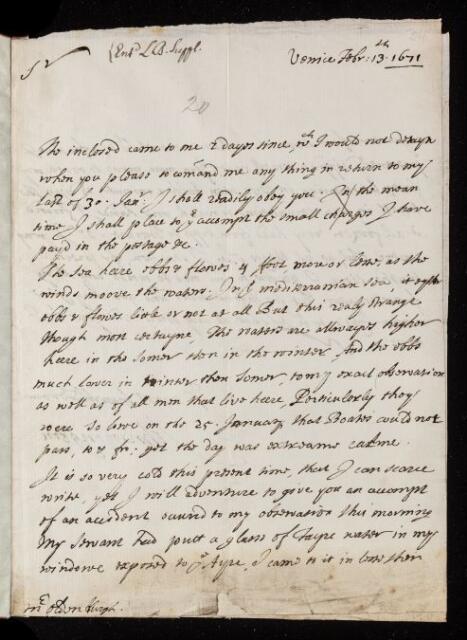 (Entd LB. Suppl.
Sr
Venice Febr: 13th 1671
20
The inclosed came to me 2 dayes since, wch I would not detayn
when you please to comand me any thing in return to my
last of 30. Janr: I shall readily obey you. In the mean
time I shall place to yr accompt the small charges I have
payd in the postage &c.
The sea here ebbs & flowes 4 foot more or lesse, as the
winds moove the waters. In ye mediterranian sea it
ebbs & flowes litle or not at all But this realy strange
though most certayne, The waters are allwayes higher
heere in the somer then in the winter, And the ebbs
much lower in winter then somer, to my exact observation
as well as of all men that live heere, Perticulerly they
were so lowe on the 25. January that Boates could not
pass, to & fr. yet the day was extreame calme.
It is so very cold this present time, that I can scarce
write, yet I will adventure to give you an accompt
of an accident ocurrd to my observation this morning
My servant had putt a glasse of fayre water in my
windowe exposed to ye Ayre, I came to it in less then
mr oldenburgh.